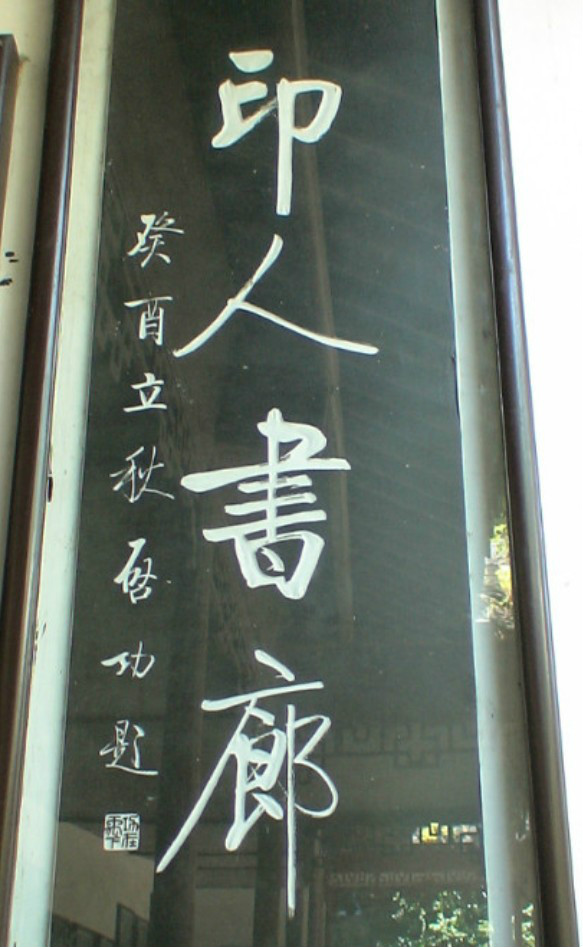 印人書廊
癸酉立秋启功题